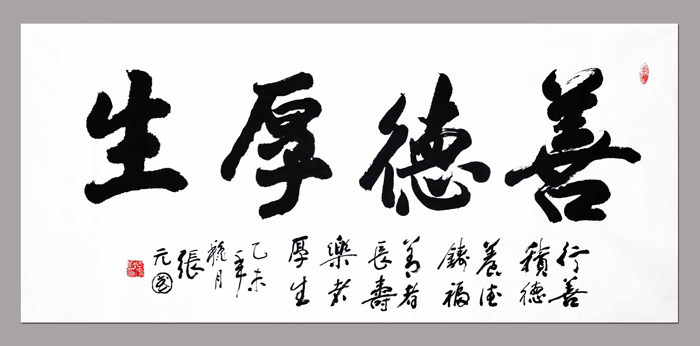 善德厚生
行善
積德
養德
鑄福
善者
長壽
樂
厚生
乙未年
龍月
張
元國